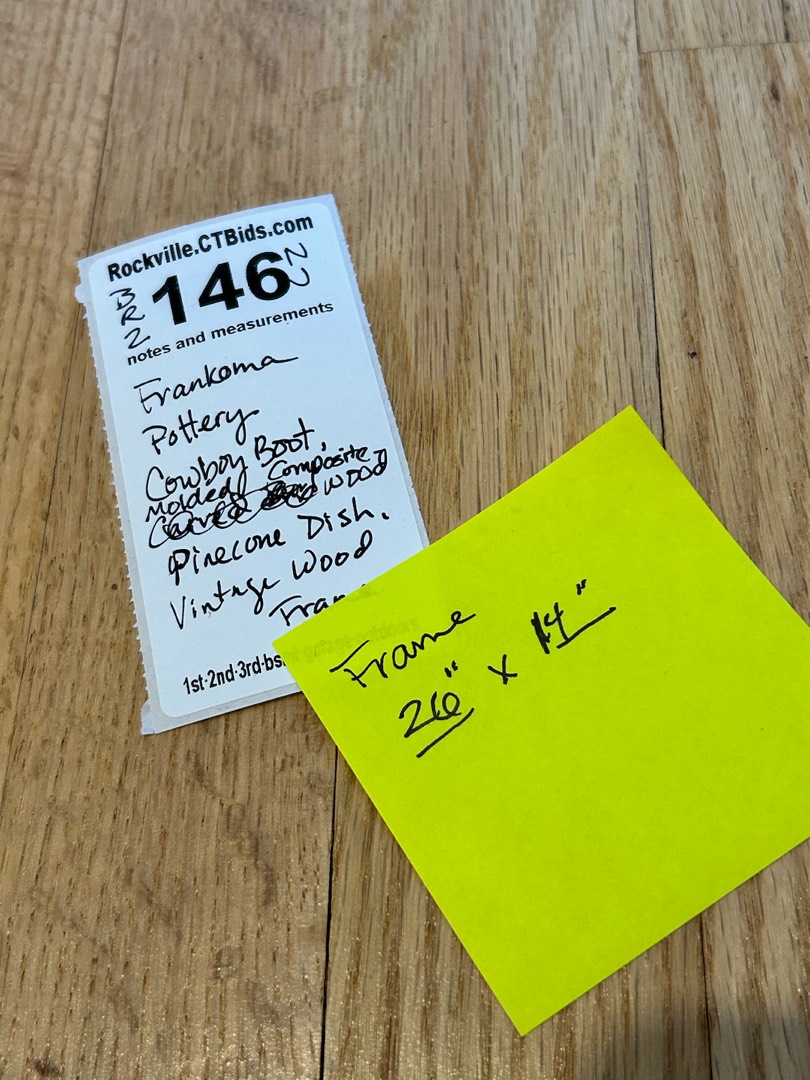 Rockville.CTBids.com
BR2 146
notes and measurements
Frankoma
Pottery
Cowboy Boot,
Molded Composite
Wood
Pinecone Dish.
Vintage Wood
1st·2nd·3rd·bs
Frame
26" x 14"